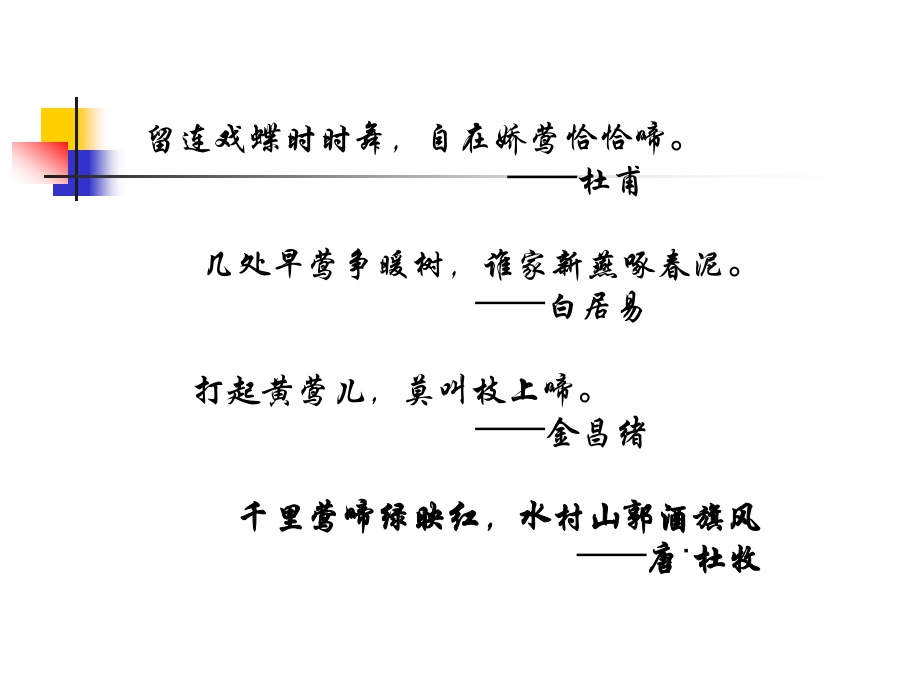 留连戏蝶时时舞，自在娇莺恰恰啼。
——杜甫
几处早莺争暖树，谁家新燕啄春泥。
——白居易
打起黄莺儿，莫叫枝上啼。
——金昌绪
千里莺啼绿映红，水村山郭酒旗风
——唐·杜牧